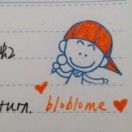 turn. bloblome